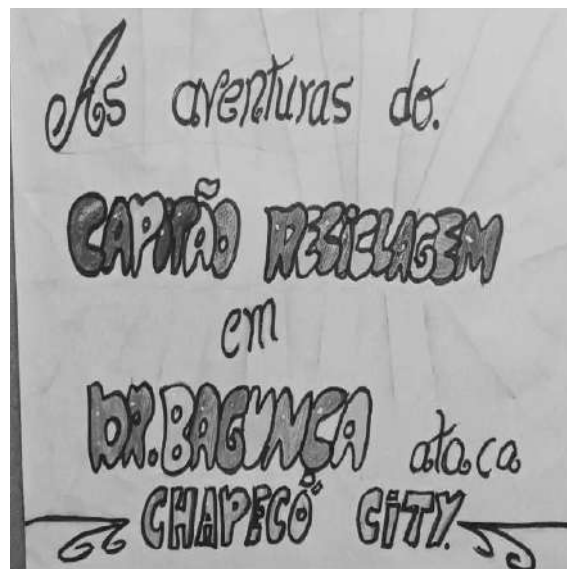 As aventuras do.
CAPITÃO RECICLAGEM
em
DR. BAGUNÇA ataca
CHAPECÓ CITY.